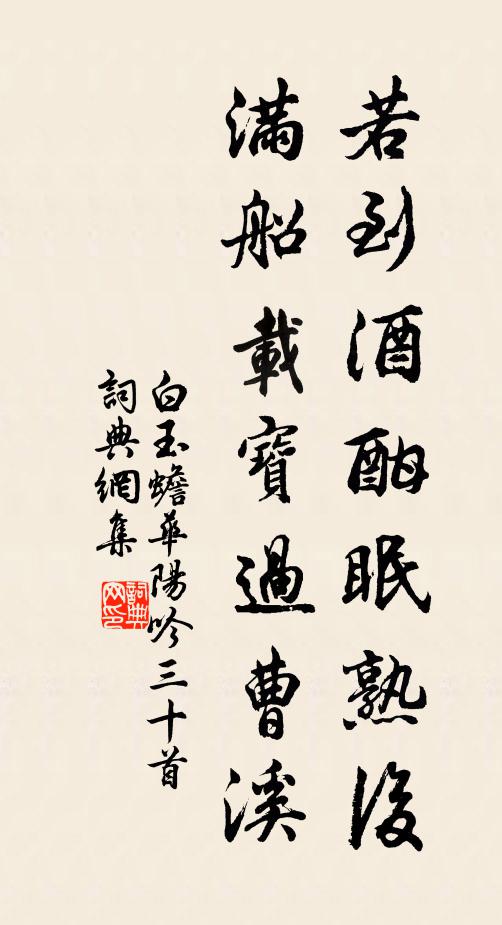 若到酒酣眠熟後
滿船載寶過曹溪
白玉蟾華陽吟三十首
詞典網集
詞典网印